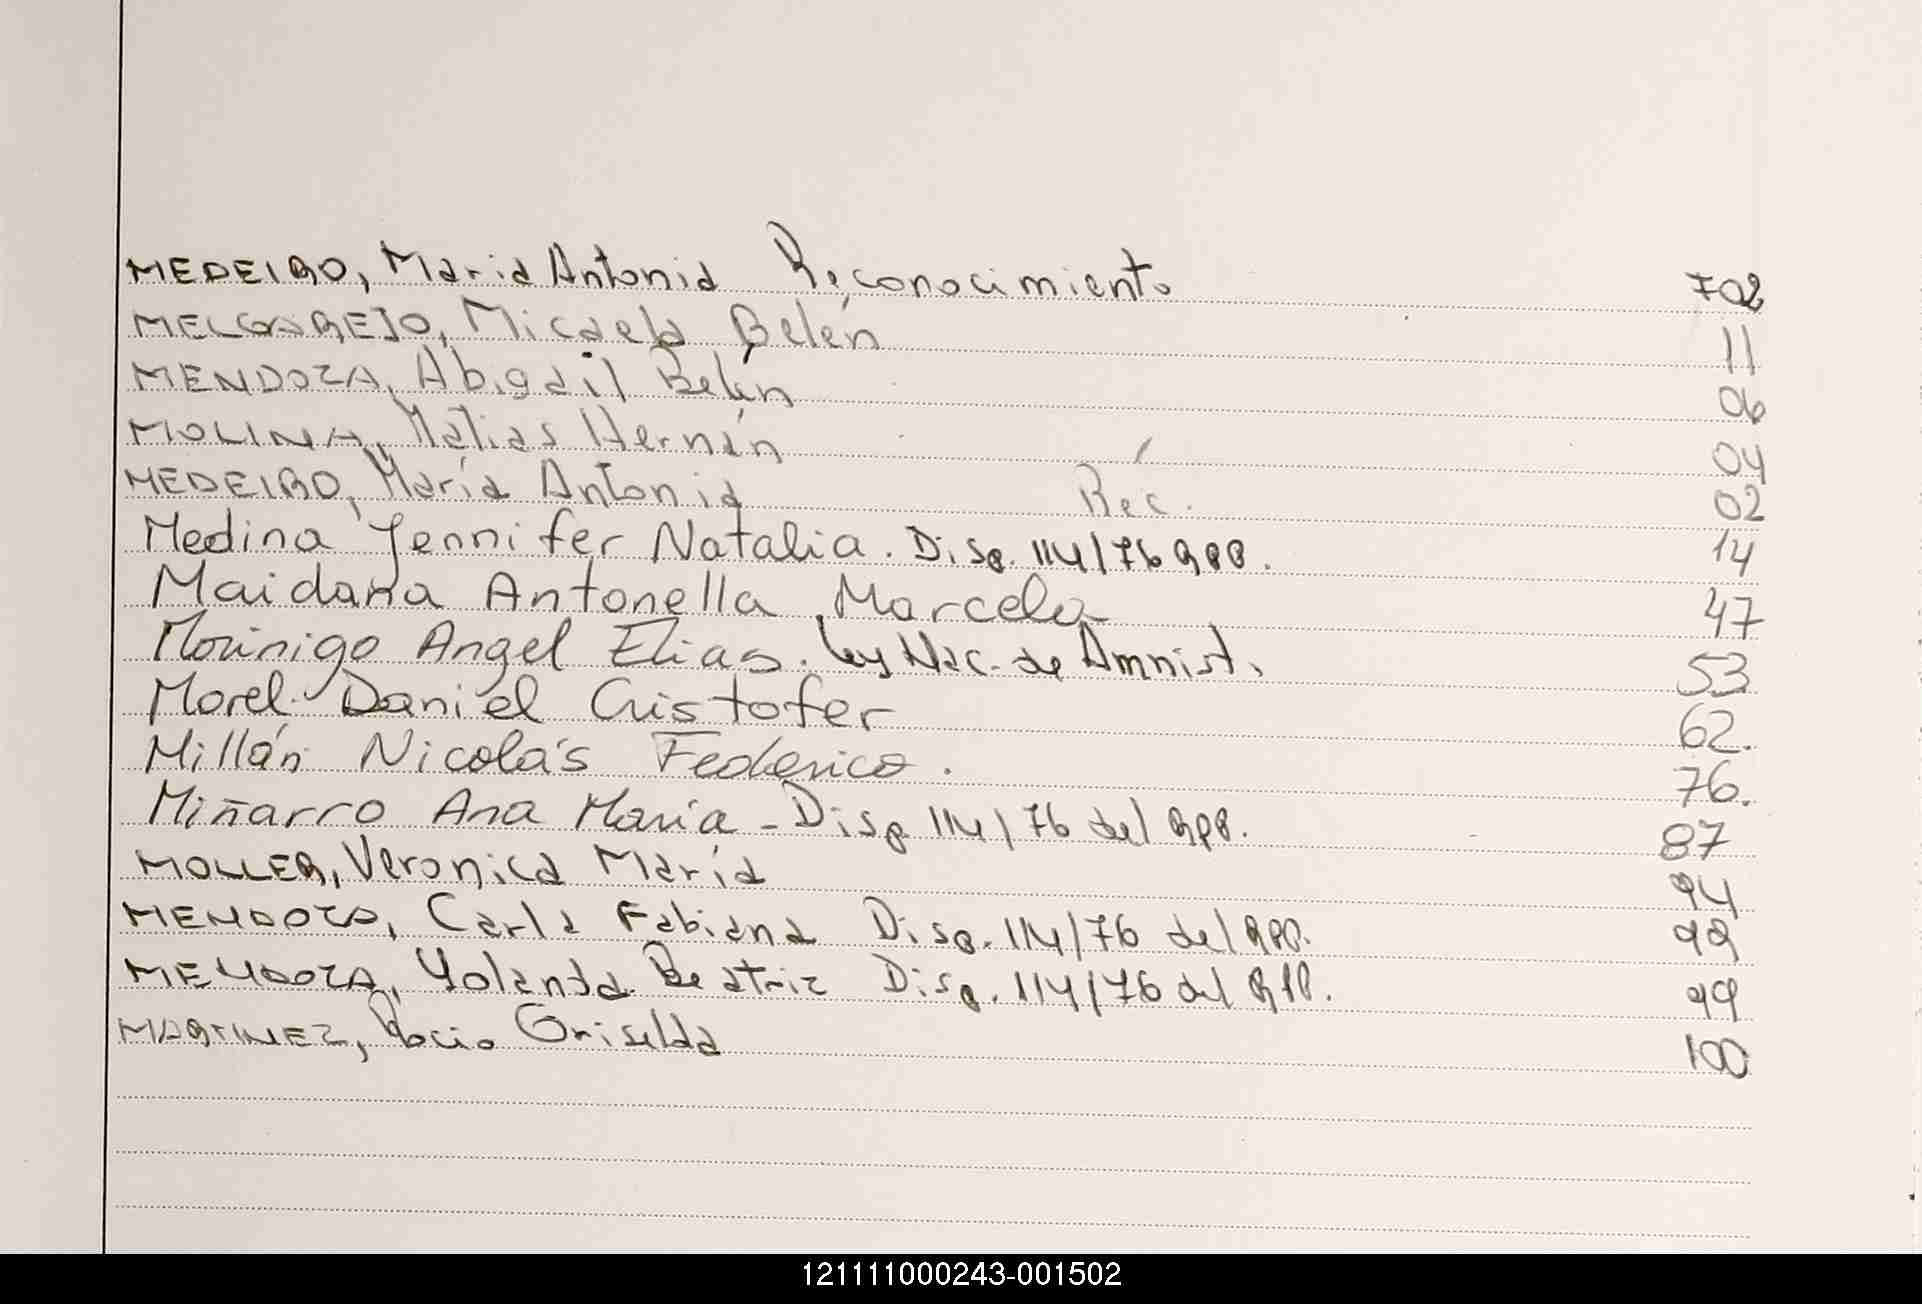 MEDEIRO, María Antonia Reconocimiento 702
MELGAREJO, Micaela Belén 11
MENDOZA, Abigail Belén 06
MOLINA, Matias Hernán 04
MEDEIRO, María Antonia Rec. 02
Medina Jennifer Natalia. Disp. 114/76 RPP. 14
Maidana Antonella Marcela 47
Morinigo Angel Elias. Ley Nac. de Amnist. 53
Morel Daniel Cristofer 62.
Millán Nicolás Federico. 76.
Miñarro Ana María - Disp. 114/76 del RPP. 87
MOLLER, Veronica María 94
MENDOZA, Carla Fabiana Disp. 114/76 del RPP. 98
MENDOZA, Yolanda Beatriz Disp. 114/76 del RPP. 99
MARTINEZ, Rocio Griselda 100
121111000243-001502